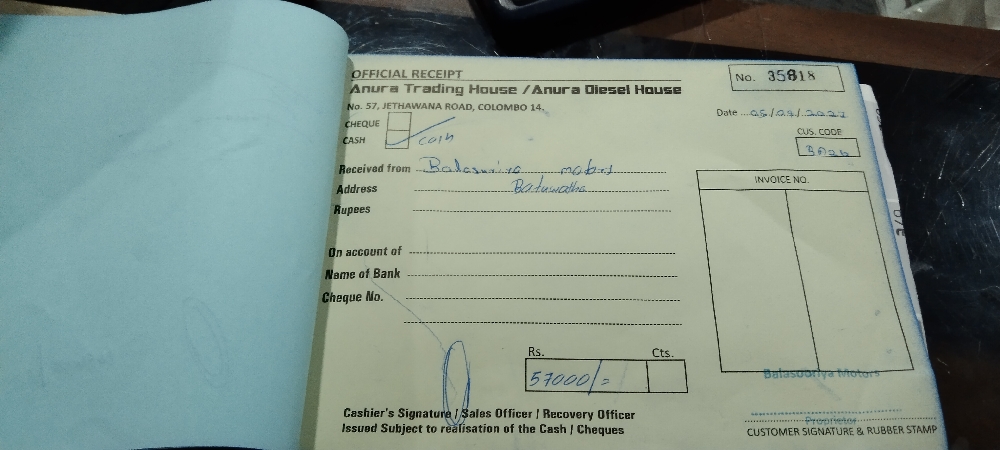 OFFICIAL RECEIPT
No. 35818
Anura Trading House / Anura Diesel House
No. 57, JETHAWANA ROAD, COLOMBO 14.
Date
CHEQUE
CASH cash
CUS. CODE
Received from Balasuriya motors
Address Batuwatha
INVOICE NO.
Rupees
On account of
Name of Bank
Cheque No.
Rs. Cts.
57000/=
Balasooriya Motors
Proprietor
Cashier's Signature / Sales Officer / Recovery Officer
Issued Subject to realisation of the Cash / Cheques
CUSTOMER SIGNATURE & RUBBER STAMP